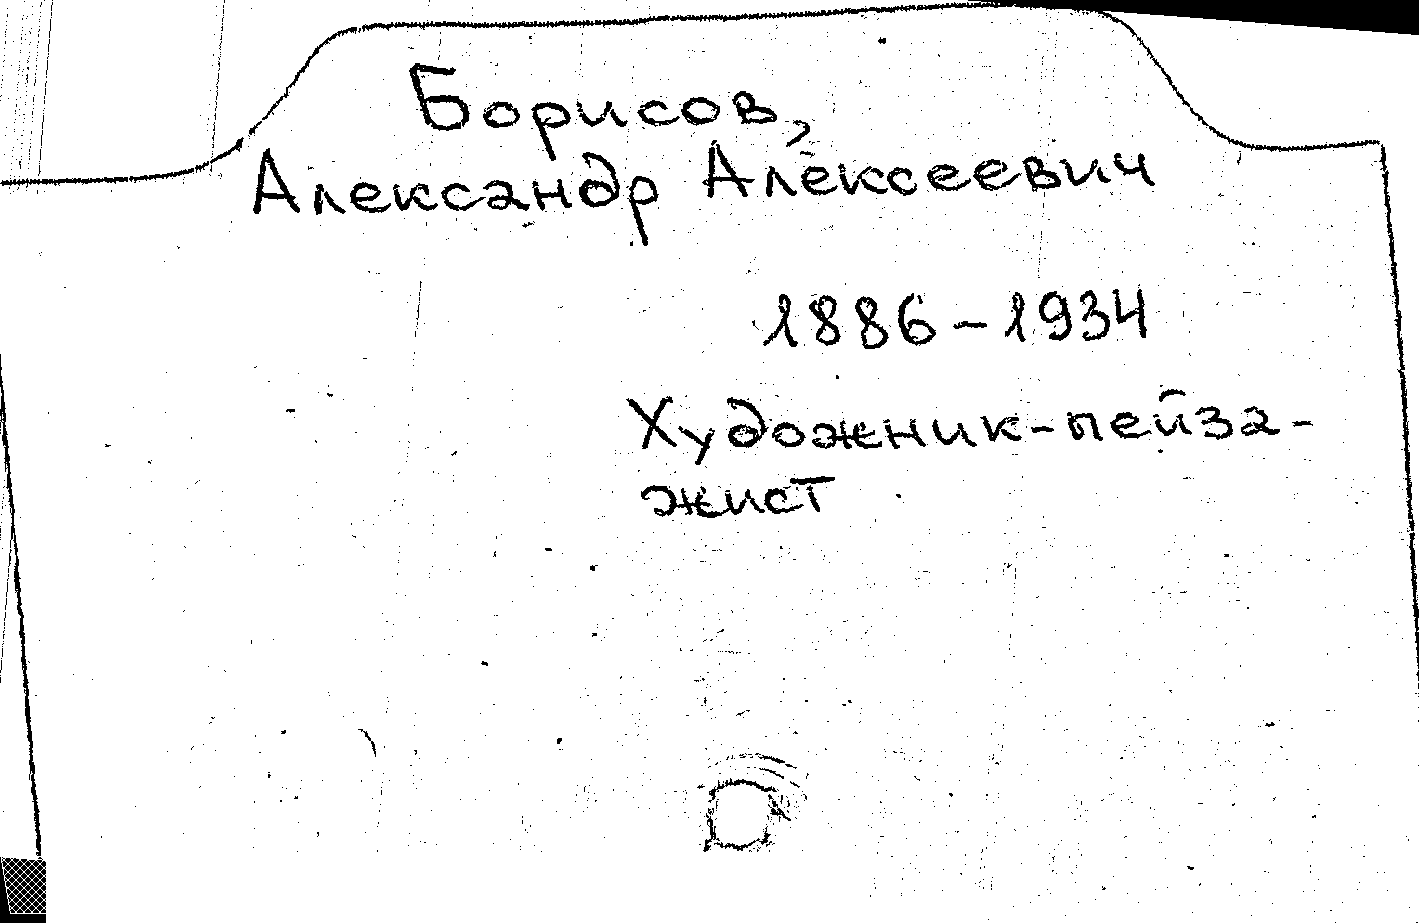 Борисов,
Александр Алексеевич
1886-1934
Художник-пейза-
жист